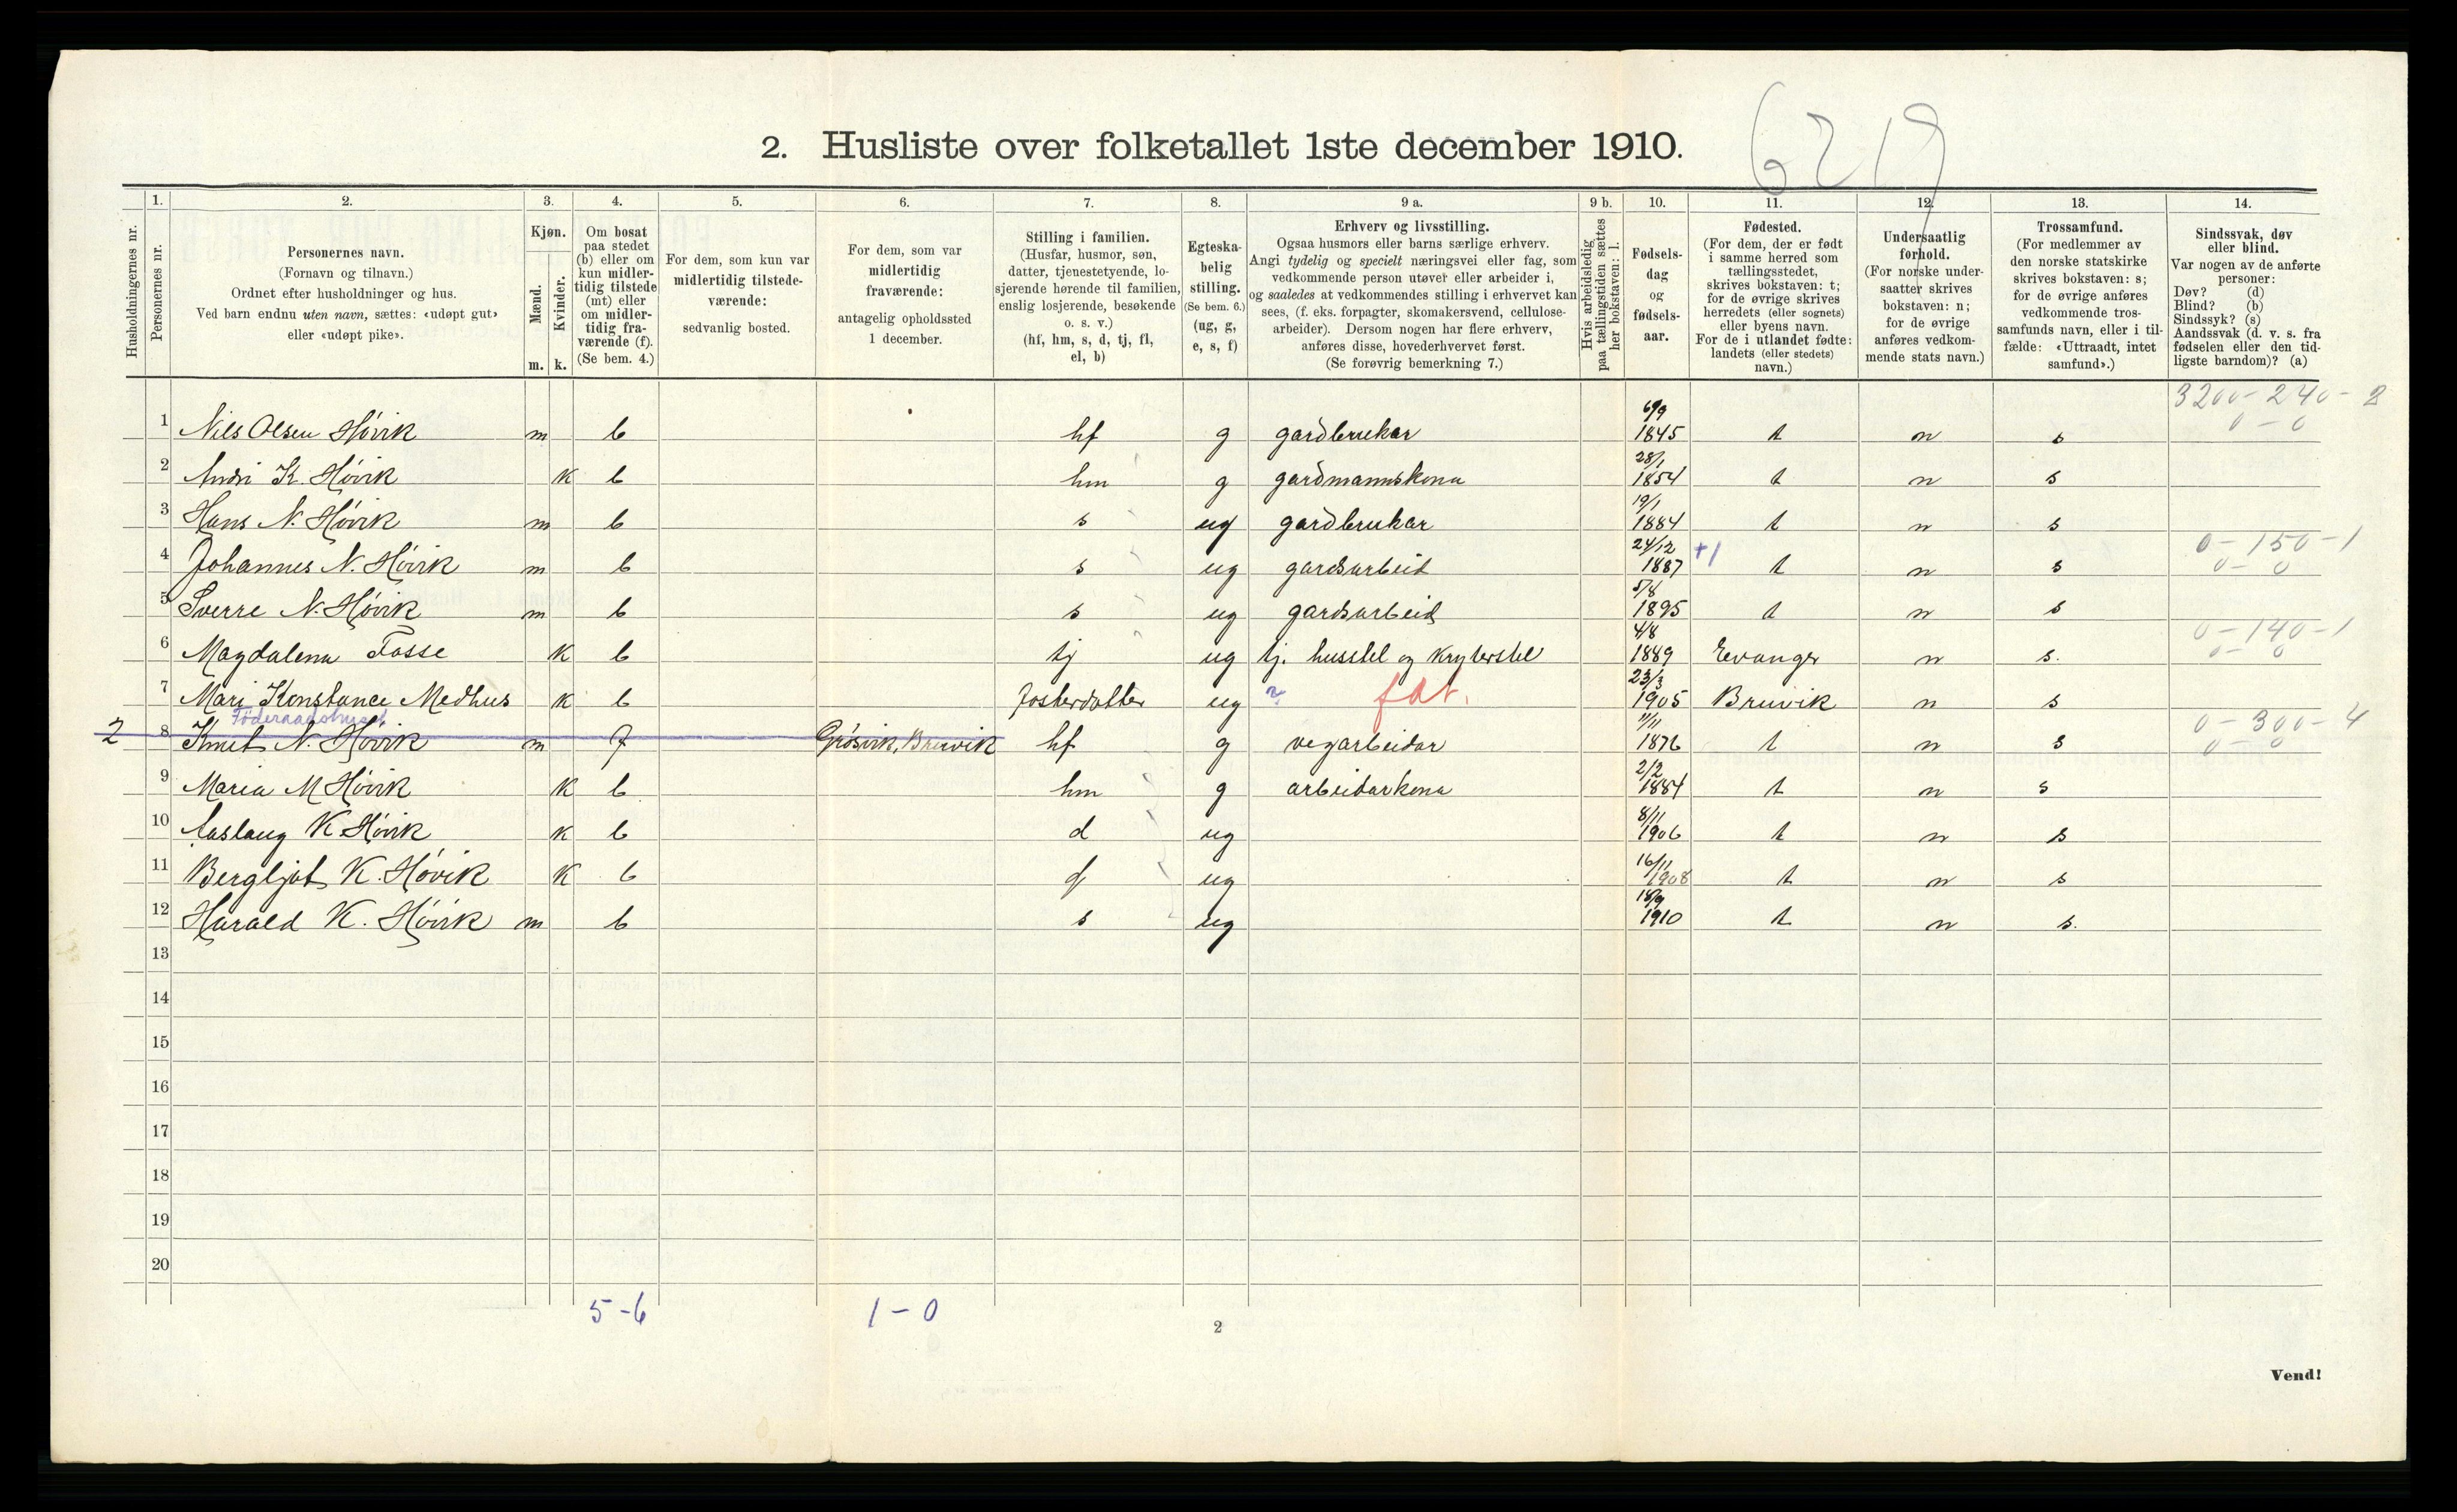 6219
2. Husliste over folketallet 1ste december 1910.
Husholdningernes nr.
1. Personernes nr.
2. Personernes navn.
(Fornavn og tilnavn.)
Ordnet efter husholdninger og hus.
Ved barn endnu uten navn, sættes: «udøpt gut»
eller «udøpt pike».
3. Kjøn.
Mænd. m.
Kvinder. k.
4. Om bosat
paa stedet
(b) eller om
kun midler-
tidig tilstede
(mt) eller
om midler-
tidig fra-
værende (f).
(Se bem. 4.)
5. For dem, som kun var
midlertidig tilstede-
værende:
sedvanlig bosted.
6. For dem, som var
midlertidig
fraværende:
antagelig opholdssted
1 december.
7. Stilling i familien.
(Husfar, husmor, søn,
datter, tjenestetyende, lo-
sjerende hørende til familien,
enslig losjerende, besøkende
o. s. v.)
(hf, hm, s, d, tj, fl,
el, b)
8. Egteska-
belig
stilling.
(Se bem. 6.)
(ug, g,
e, s, f)
9 a. Erhverv og livsstilling.
Ogsaa husmors eller barns særlige erhverv.
Angi tydelig og specielt næringsvei eller fag, som
vedkommende person utøvet eller arbeider i,
og saaledes at vedkommendes stilling i erhvervet kan
sees, (f. eks. forpagter, skomakersvend, cellulose-
arbeider). Dersom nogen har flere erhverv,
anføres disse, hovederhvervet først.
(Se forøvrig bemerkning 7.)
9 b. Hvis arbeidsledig
paa tællingstiden sættes
her bokstaven: l.
10. Fødsels-
dag
og
fødsels-
aar.
11. Fødested.
(For dem, der er født
i samme herred som
tællingsstedet,
skrives bokstaven: t;
for de øvrige skrives
herredets (eller sognets)
eller byens navn.
For de i utlandet fødte:
landets (eller stedets)
navn.)
12. Undersaatlig
forhold.
(For norske under-
saatter skrives
bokstaven: n;
for de øvrige
anføres vedkom-
mende stats navn.)
13. Trossamfund.
(For medlemmer av
den norske statskirke
skrives bokstaven: s;
for de øvrige anføres
vedkommende tros-
samfunds navn, eller i til-
fælde: «Uttraadt, intet
samfund».)
14. Sindssvak, døv
eller blind.
Var nogen av de anførte
personer:
Døv? (d)
Blind? (b)
Sindssyk? (s)
Aandssvak (d. v. s. fra
fødselen eller den tid-
ligste barndom)? (a)
3200 - 240 - 2
0 - 0
1 Nils Olsen Hóvik m b hf g gardbrukar 6/9 1845 t n s
2 Andri K. Hóvik k b hm g gardmannskona 28/1 1854 t n s
3 Hans N. Hóvik m b s ug gardbrukar 19/1 1884 t n s
4 Johannes N. Hóvik m b s ug gardsarbeid 24/12 1887 +1 t n s 0 - 150 - 1
0 - 0
5 Sverre N. Hóvik m b s ug gardsarbeid 5/8 1895 t n s
6 Magdalena Fosse k b tj ug tj. husstel og kryterstel 4/8 1889 Evanger n s. 0 - 140 - 1
0 - 0
7 Mari Konstance Medhus k b fosterdotter ug fat. 23/3 1905 Bruvik n s
Föderaadshuset
2 8 Knut N. Hóvik m f Grósvik, Bruvik hf g vegarbeidar 11/11 1876 t n s 0 - 300 - 4
0 - 0
9 Maria M Hóvik k b hm g arbeidarkona 2/2 1884 t n s
10 Aaslaug K Hóvik k b d ug 8/11 1906 t n s
11 Bergljot K. Hóvik k b d ug 16/11 1908 t n s
12 Harald K. Hóvik m b s ug 18/9 1910 t n s.
13
14
15
16
17
18
19
20
5 - 6 1 - 0
2
Vend!